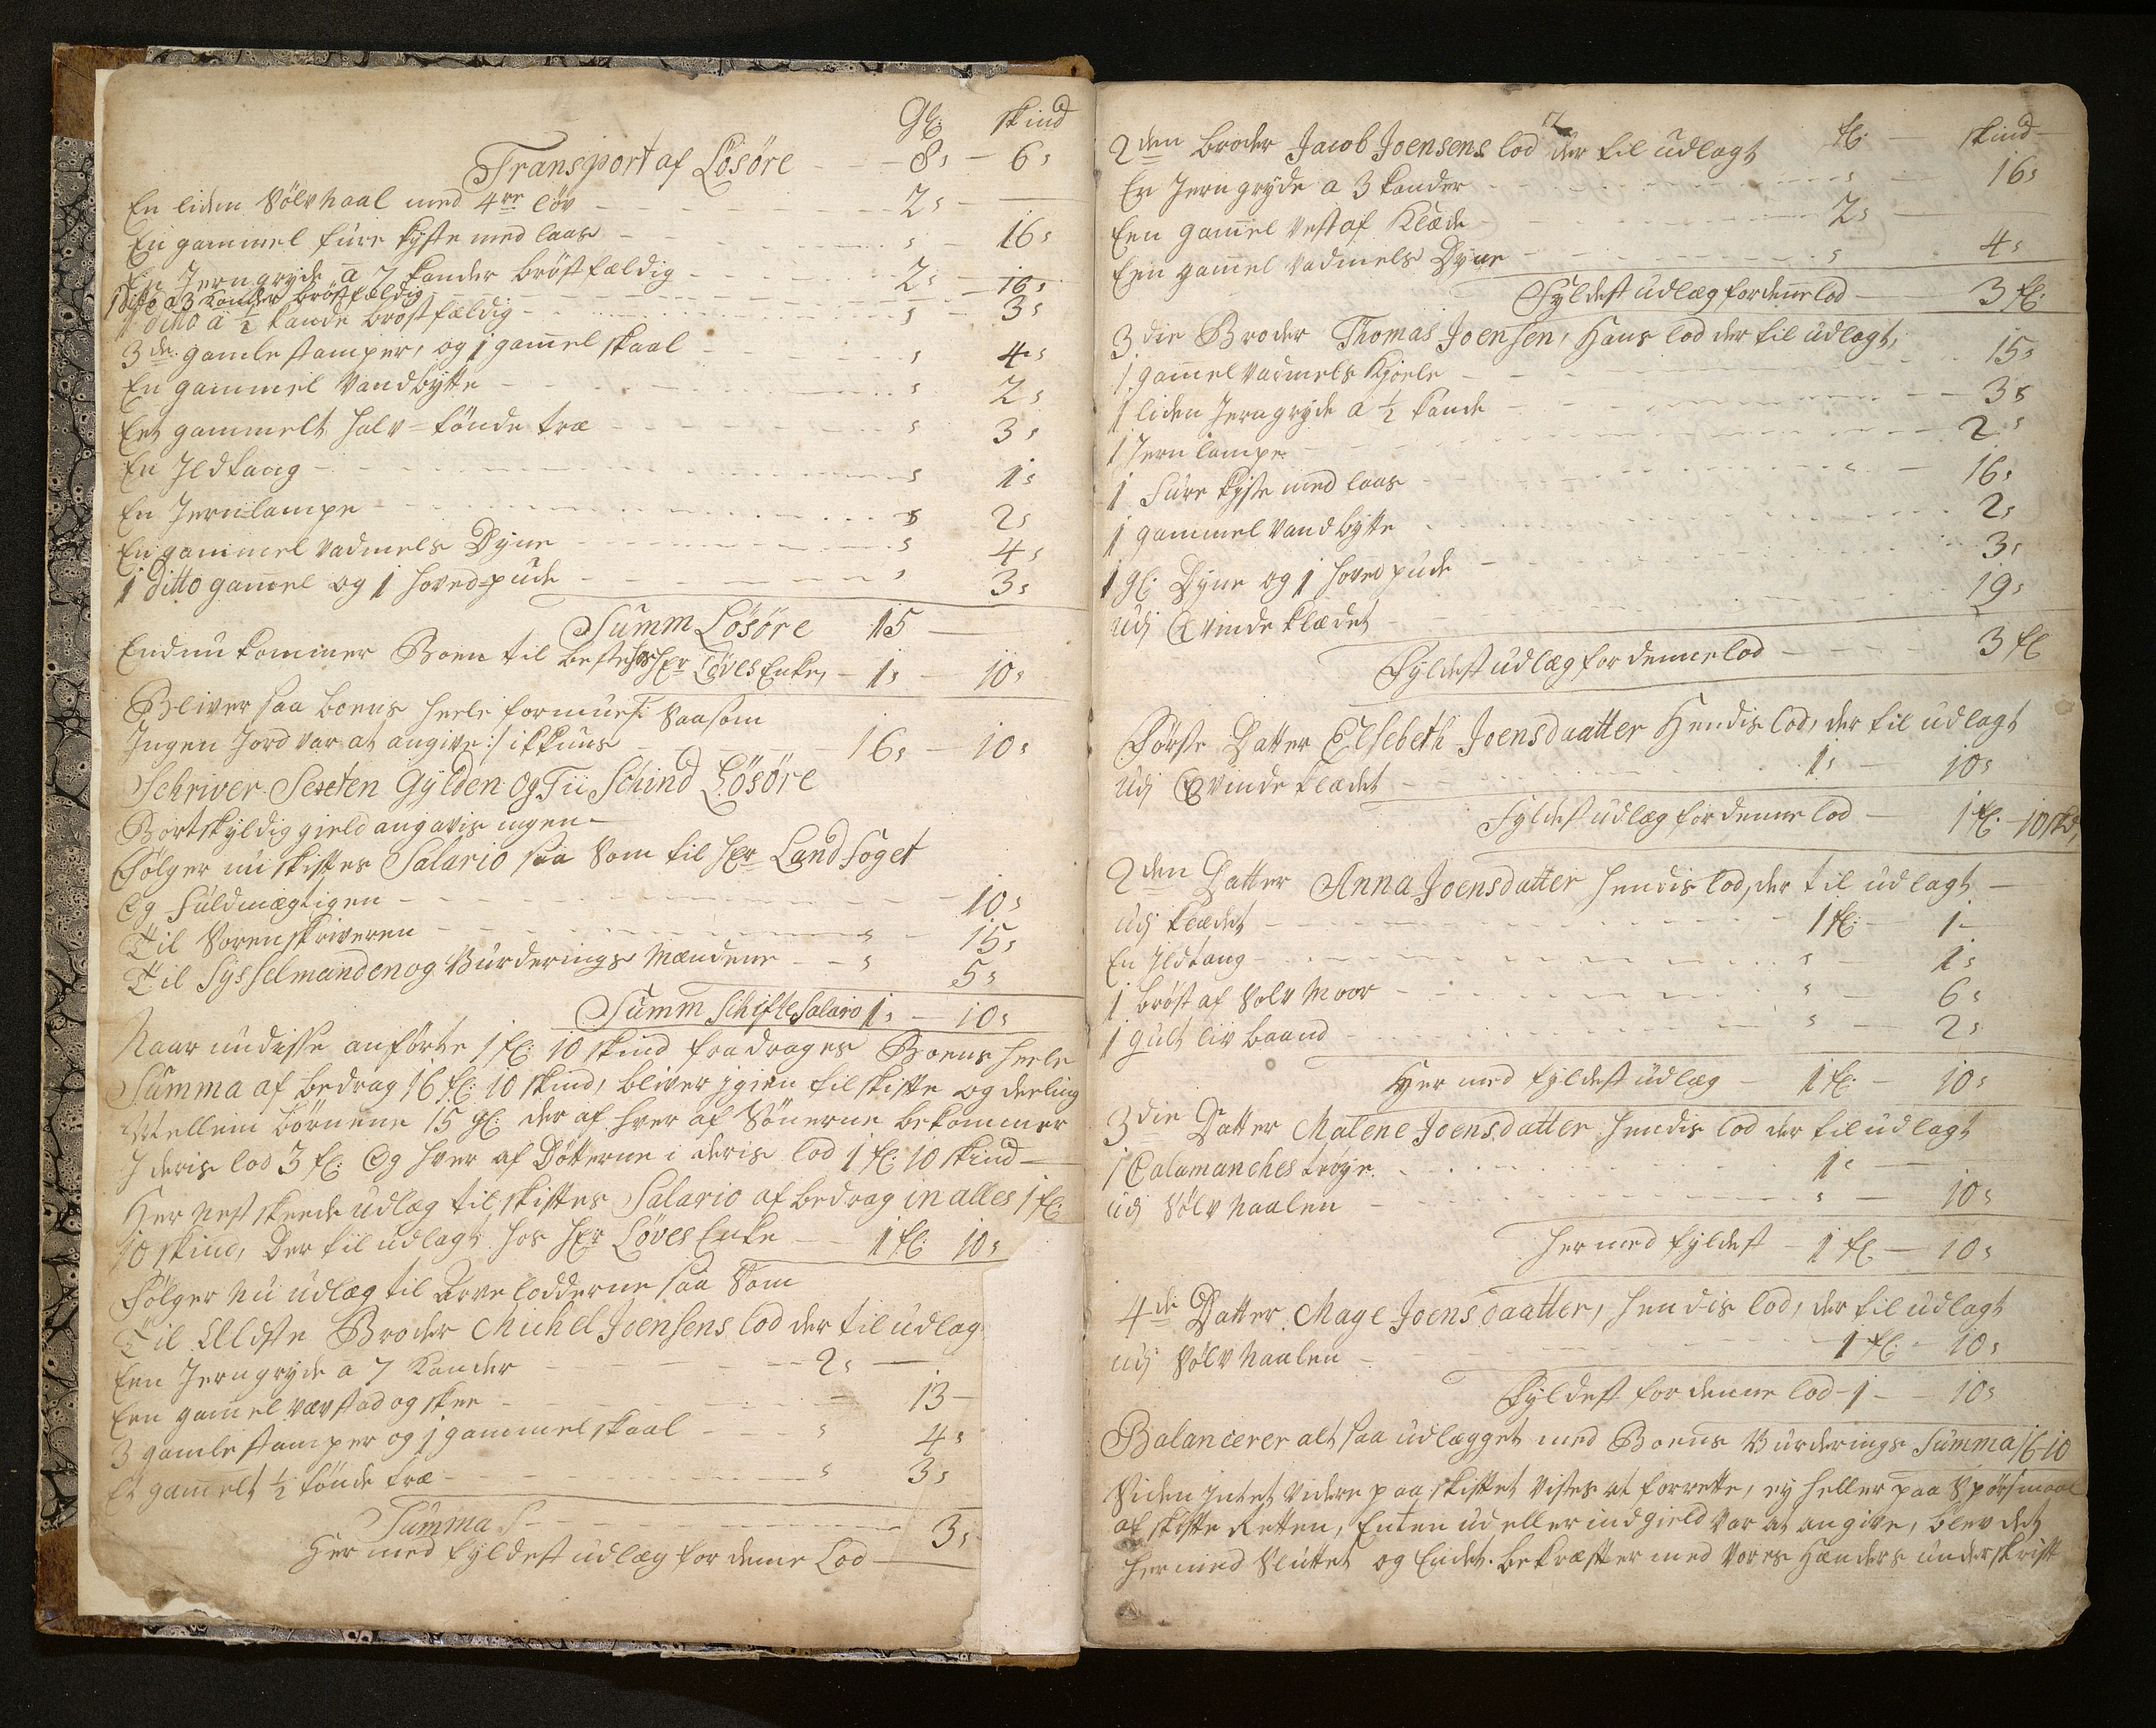 gl: skind
Transport af Lösöre 8, 6,
En liden Sölv naal med 4re löv 2,
En gammel füre kiste med laas 16,
En Jerngryde a 7 kander bröstfældig 2,
1 ditto a 3 kander bröstfældig 16,
1 ditto a ½ kande bröstfældig 3,
3de gamle stamper, og 1 gamel skaal 4,
En gammel Vandbytte 2,
Eet gammelt halv-tönde træ 3,
En Ildtang 1,
En Jern-lampe 2,
En gammel vadmels Dyne 4,
1 ditto gamel og 1 hoved-püde 3,
Summ Lösöre 15
Endnu kommer Boen til beste hos Hr Löves Enke, 1, 10,
Bliver saa boens heele formue /: saasom
Ingen Jord var at angive :/ ikkuns 16, 10,
Schriver Sexten Gylden Og Tii Schind Lösöre
Bortskyldig gield angavis ingen
Fölger nu skiftes Salario saa Som til Hr Landfoget
Og Fuldmægtigen 10,
Til Sorenskriveren 15,
Til Sysselmanden og Vurderings Mændene 5,
Summ Schifte Salario 1, 10,
Naar nu disse anförte 1 fl: 10 skind fradrages Boens heele
Summa af bedrag 16 fl: 10 skind, bliver igien til skifte og deeling
Mellem börnene 15 gl: der af hver af Sönerne bekommer
I deris lod 3 fl: Og hver af Dötterne i deris lod 1 fl: 10 skind
Her nest skeede udlæg til skiftes Salario af bedrag in alles 1 fl:
10 skind, der til udlagt hos Hr Löves Enke 1 fl: 10,
Fölger Nu udlæg til Arve lodderne saa Som
Til Eldste Broder Michel Joensens lod der til udlag
Een Jerngryde a 7 kander 2,
Een gamel vævstad og skee 13
3 gamle stamper og 1 gammel skaal 4,
Et gamelt ½ tönde træ 3,
Summa 3,
Her med fyldest udlæg for denne Lod
2den broder Jacob Joensens lod der til udlagt fl: skind
En Jerngryde a 3 kander 16,
Een gamel Vest af Klæde 2,
Een gamel vadmels Dyne 4,
Fyldest udlæg for denne lod 3 fl:
3die Broder Thomas Joensen, Hans lod der til udlagt,
1 gamel vadmels Kjoele 15,
1 liden Jerngryde a ½ kande 3,
1 Jern lampe 2,
1 Füre kiste med laas 16,
1 gammel Vandbytte 2,
1 gl: Dyne og 1 hoved püde 3,
udj Qvinde klædet 19,
Fyldest udlæg for denne lod 3 fl
Förste Datter Elsebeth Joensdaatter Hendis lod, der til udlagt
Udj Qvinde klædet 1, 10,
Fyldest udlæg for denne lod 1 fl: 10 skd,
2den Datter Anna Joensdatter hendis lod, der til udlagt
udj klædet 1 fl: 1
En Ildtang 1,
1 bröst af Sölv Moor 6,
1 gult liv baand 2,
Her med fyldest udlæg 1 fl: 10,
3die Datter Malene Joensdatter hendis lod der til udlagt
1 Calamanches tröye 1,
udj Sölv naalen 10,
Her med fyldest 1 fl. 10,
4de Datter Mage Joensdaatter, hendis lod, der til udlagt
udj Sölv naalen 1 fl: 10,
Fyldest for denne lod 1 10,
Balancerer alt saa udlægget med Boens Vurderings Summa 16-10
Siden Intet videre paa skiftet vistes at forrette, ey heller paa Spörsmaal
af skifte Retten, Enten ud eller indgield var at angive, blev det
hermed Sluttet og Endet. bekræfter med Vores hænders underskrift